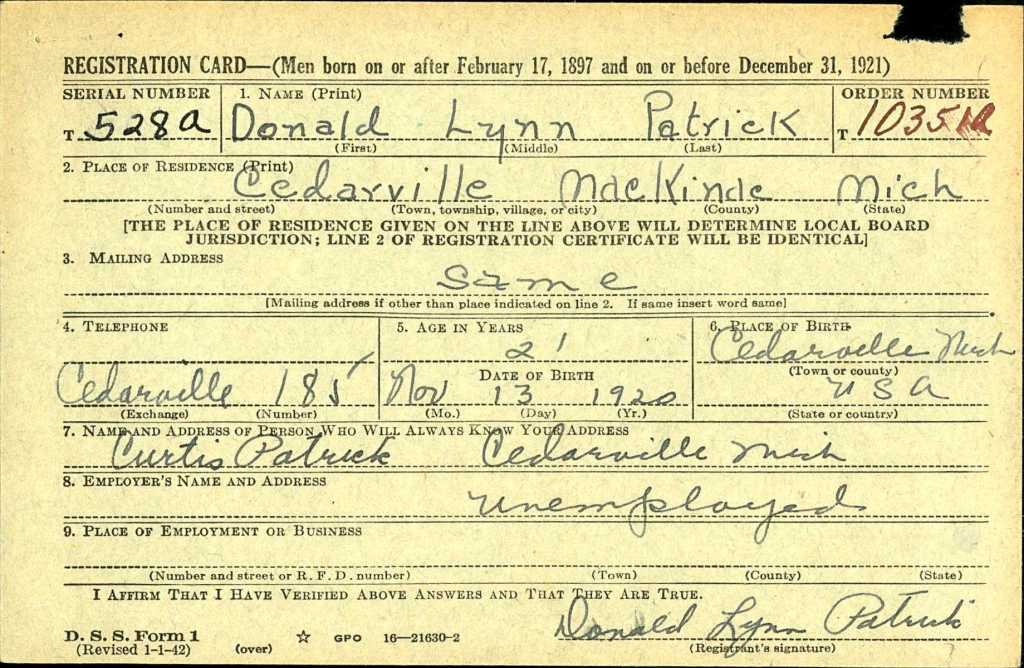 REGISTRATION CARD—(Men born on or after February 17, 1897 and on or before December 31, 1921)
SERIAL NUMBER 1. NAME (Print) ORDER NUMBER
T 528A Donald Lynn Patrick T
(First) (Middle) (Last)
2. PLACE OF RESIDENCE (Print)
Cedarville Mackinac Mich
(Number and street) (Town, township, village, or city) (County) (State)
[THE PLACE OF RESIDENCE GIVEN ON THE LINE ABOVE WILL DETERMINE LOCAL BOARD
JURISDICTION; LINE 2 OF REGISTRATION CERTIFICATE WILL BE IDENTICAL]
3. MAILING ADDRESS
Same
[Mailing address if other than place indicated on line 2. If same insert word same]
4. TELEPHONE 5. AGE IN YEARS 6. PLACE OF BIRTH
21 Cedarville Mich
DATE OF BIRTH (Town or county)
Cedarville 185 Nov 13 1920 USA
(Exchange) (Number) (Mo.) (Day) (Yr.) (State or country)
7. NAME AND ADDRESS OF PERSON WHO WILL ALWAYS KNOW YOUR ADDRESS
Curtis Patrick Cedarville Mich
8. EMPLOYER'S NAME AND ADDRESS
Unemployed
9. PLACE OF EMPLOYMENT OR BUSINESS
(Number and street or R. F. D. number) (Town) (County) (State)
I AFFIRM THAT I HAVE VERIFIED ABOVE ANSWERS AND THAT THEY ARE TRUE.
Donald Lynn Patrick
D. S. S. Form 1
(Revised 1-1-42) (over) ☆ GPO 16—21630-2 (Registrant's signature)